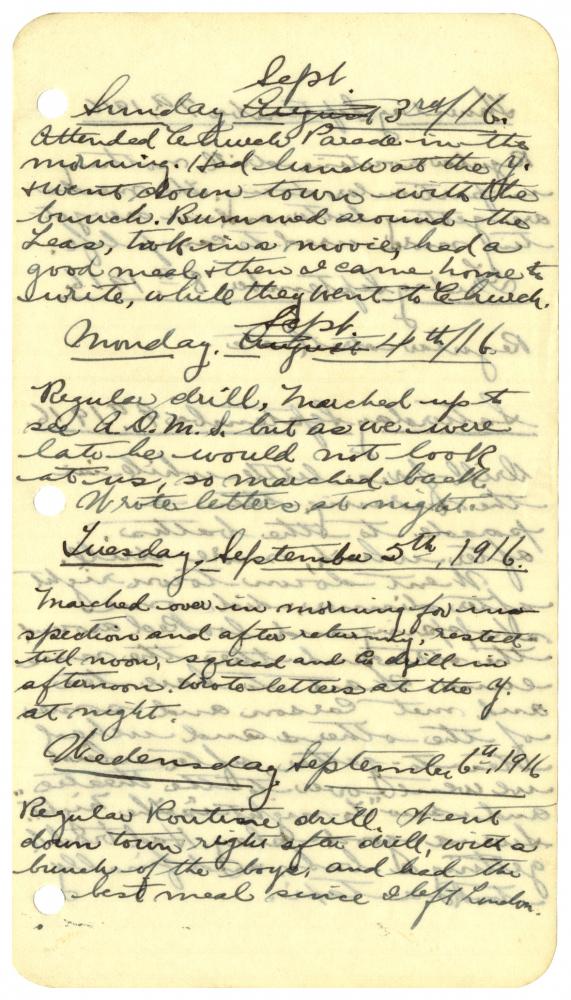 Sept.
Sunday August 3rd/16.
Attended Church Parade in the
morning. Had lunch at the Y.
& went down town with the
bunch. Bummed around the
Leas, took in a movie, had a
good meal & then I came home to
write, while they went to Church.
Sept.
Monday. August 4th/16
Regular drill, Marched up to
see A.D.M.S. but as we were
late he would not look
at us, so marched back
Wrote letters at night.
Tuesday, September 5th, 1916.
Marched over in morning for in-
spection and after returning, rested
till noon, squad and Co drill in
afternoon. Wrote letters at the Y.
at night.
Wedensday September 6th, 1916
"Regular Routine drill. Went
down town right after drill, with a
bunch of the boys, and had the
best meal since I left London.